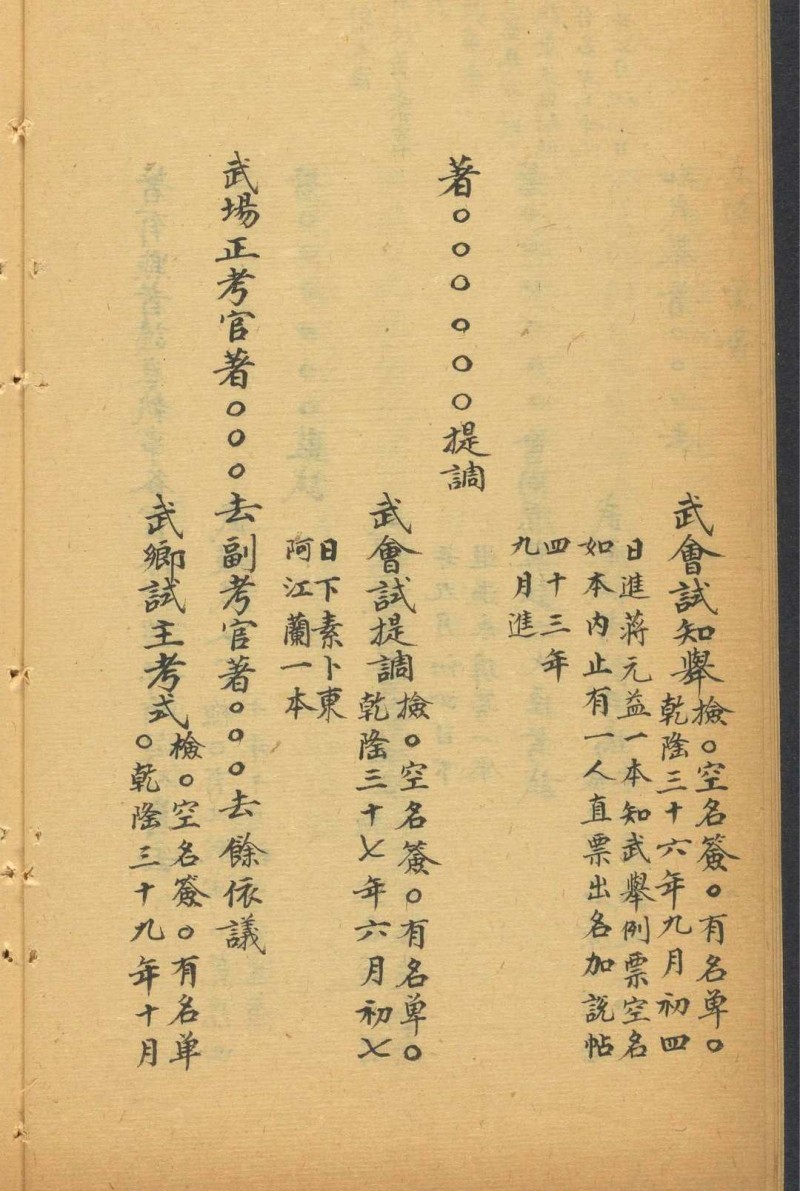 武會試知舉
檢○空名簽○有名單○
乾隆三十六年九月初四
日進蔣元益一本知武舉例票空名
如本内止有一人直票出名加説帖
四十三年
九月進
著○○○○○○提調
武會試提調
檢○空名簽○有名單○
乾隆三十七年六月初七
日下素卜東
阿江蘭一本
武場正考官著○○○去副考官著○○○去餘依議
武鄉試主考式
檢○空名簽○有名單
○乾隆三十九年十月